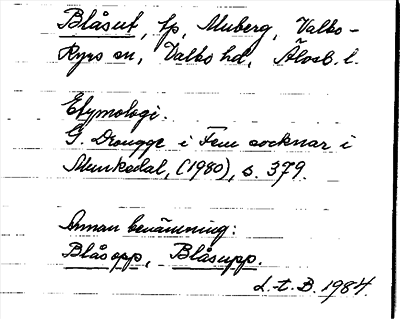 Blåsut, fp, Muberg, Valbo-
Ryrs sn, Valbo hd, Älvsb. l.
Etymologi.
G. Drougge i Fem socknar i
Munkedal, (1980), s. 379.
Annan benämning:
Blåsopp, Blåsupp.
L.-t. B. 1984.